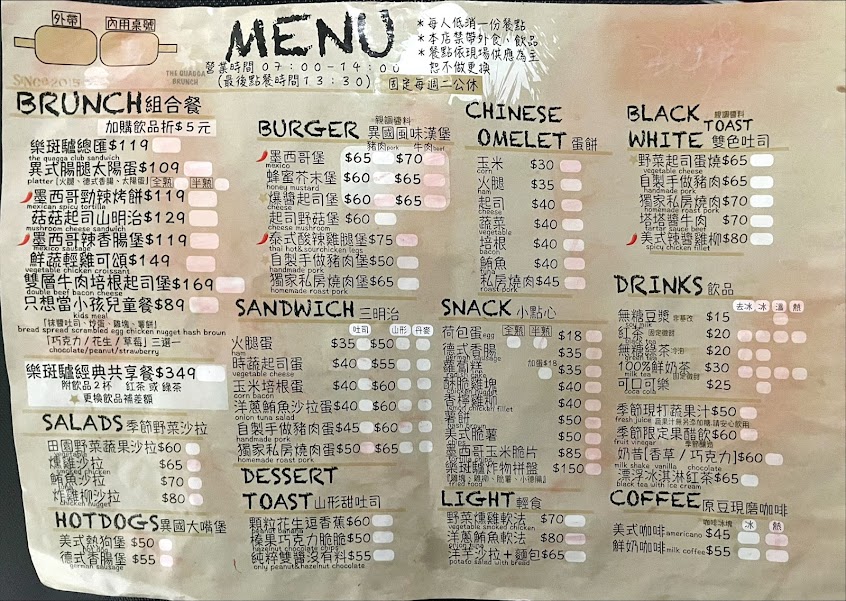 外帶
內用桌號
SINCE2015
THE QUAGGA
BRUNCH
MENU
營業時間 07:00-14:00
(最後點餐時間13:30)
固定每週二公休
*每人低消一份餐點
*本店禁帶外食、飲品
*餐點依現場供應為主
恕不做更換
BRUNCH組合餐
加購飲品折$5元
樂斑驢總匯$119
the quagga club sandwich
異式腸腿太陽蛋$109
platter [火腿、德式香腸、太陽蛋] 全熟 半熟
墨西哥勁辣烤餅$119
mexican spicy tortilla
菇菇起司山明治$129
mushroom cheese sandwich
墨西哥辣香腸堡$119
mexico sausage
鮮蔬輕雞可頌$149
vegetable chicken croissant
雙層牛肉培根起司堡$169
double beef bacon cheese
只想當小孩兒童餐$89
kids meal
「抹醬吐司、炒蛋、雞塊、薯餅」
bread spread scrambled egg chicken nugget hash brown
「巧克力/花生/草莓」三選一
chocolate/peanut/strawberry
樂斑驢經典共享餐$349
附飲品2杯 紅茶 或 綠茶
更換飲品補差額
SALADS 季節野菜沙拉
田園野菜蔬果沙拉$60
燻雞沙拉 $65
smoked chicken
鮪魚沙拉 $70
炸雞柳沙拉 $80
chicken nugget
HOTDOGS異國大嘴堡
美式熱狗堡 $50
德式香腸堡 $55
german sausage
BURGER 異國風味漢堡
豬肉pork 牛肉beef
墨西哥堡 $65 $70
mexico
蜂蜜芥末堡 $60 $65
honey mustard
爆醬起司堡 $60 $65
cheese
起司野菇堡 $60
cheese mushroom
泰式酸辣雞腿堡$75
thai hot&sourchicken legs
自製手做豬肉堡$50
handmade pork
獨家私房燒肉堡$65
homemade roast pork
SANDWICH 三明治
吐司 山形 丹麥
火腿蛋 $35 $50
ham
時蔬起司蛋 $40 $60
vegetable cheese
玉米培根蛋 $40 $60
corn bacon
洋蔥鮪魚沙拉蛋$40 $60
onion tuna salad
自製手做豬肉蛋$45 $60
handmade pork
獨家私房燒肉蛋$50 $65
homemade roast pork
DESSERT
TOAST山形甜吐司
顆粒花生逗香蕉$60
peanut banana
榛果巧克力脆脆$50
hazelnut chocolate chips
純粹雙醬沒有料$55
only peanut&hazelnut chocolate
CHINESE
OMELET 蛋餅
玉米 $30
corn
火腿 $35
ham
起司 $40
cheese
蔬菜 $40
vegetable
培根 $40
bacon
鮪魚 $40
tuna
私房燒肉 $45
roast pork
SNACK 小點心
全熟 半熟
荷包蛋egg $18
德式香腸 $35
german sausage
加蛋$18
蘿蔔糕 $35
酥脆雞塊 $40
香檸雞柳 $40
薯餅 $50
美式脆薯 $50
墨西哥玉米脆片 $85
樂斑驢炸物拼盤 $150
『雞塊、雞柳、脆薯、小德腸』
fried food
LIGHT 輕食
野菜燻雞軟法 $70
vegetable smoked chicken
洋蔥鮪魚軟法 $80
芋芋沙拉+麵包$65
potato salad with bread
BLACK
WHITE TOAST
雙色吐司
野菜起司蛋燒$65
vegetable cheese
自製手做豬肉$65
handmade pork
獨家私房燒肉$70
homemade roast pork
塔塔醬牛肉 $70
tartar sauce beef
美式辣醬雞柳$80
spicy chicken
DRINKS 飲品
去冰 冰 溫 熱
無糖豆漿 $15
紅茶 $20
無糖綠茶 $20
100%鮮奶茶 $30
可口可樂 $25
coca cola
季節現打蔬果汁$50
fresh juice
季節限定果醋飲$60
fruit vinegar
奶昔[香草/巧克力]$60
milk shake vanilla chocolate
漂浮冰淇淋紅茶$65
black tea with ice cream
COFFEE 原豆現磨咖啡
咖啡冰塊 冰 熱
美式咖啡americano $45
鮮奶咖啡milk coffee$55